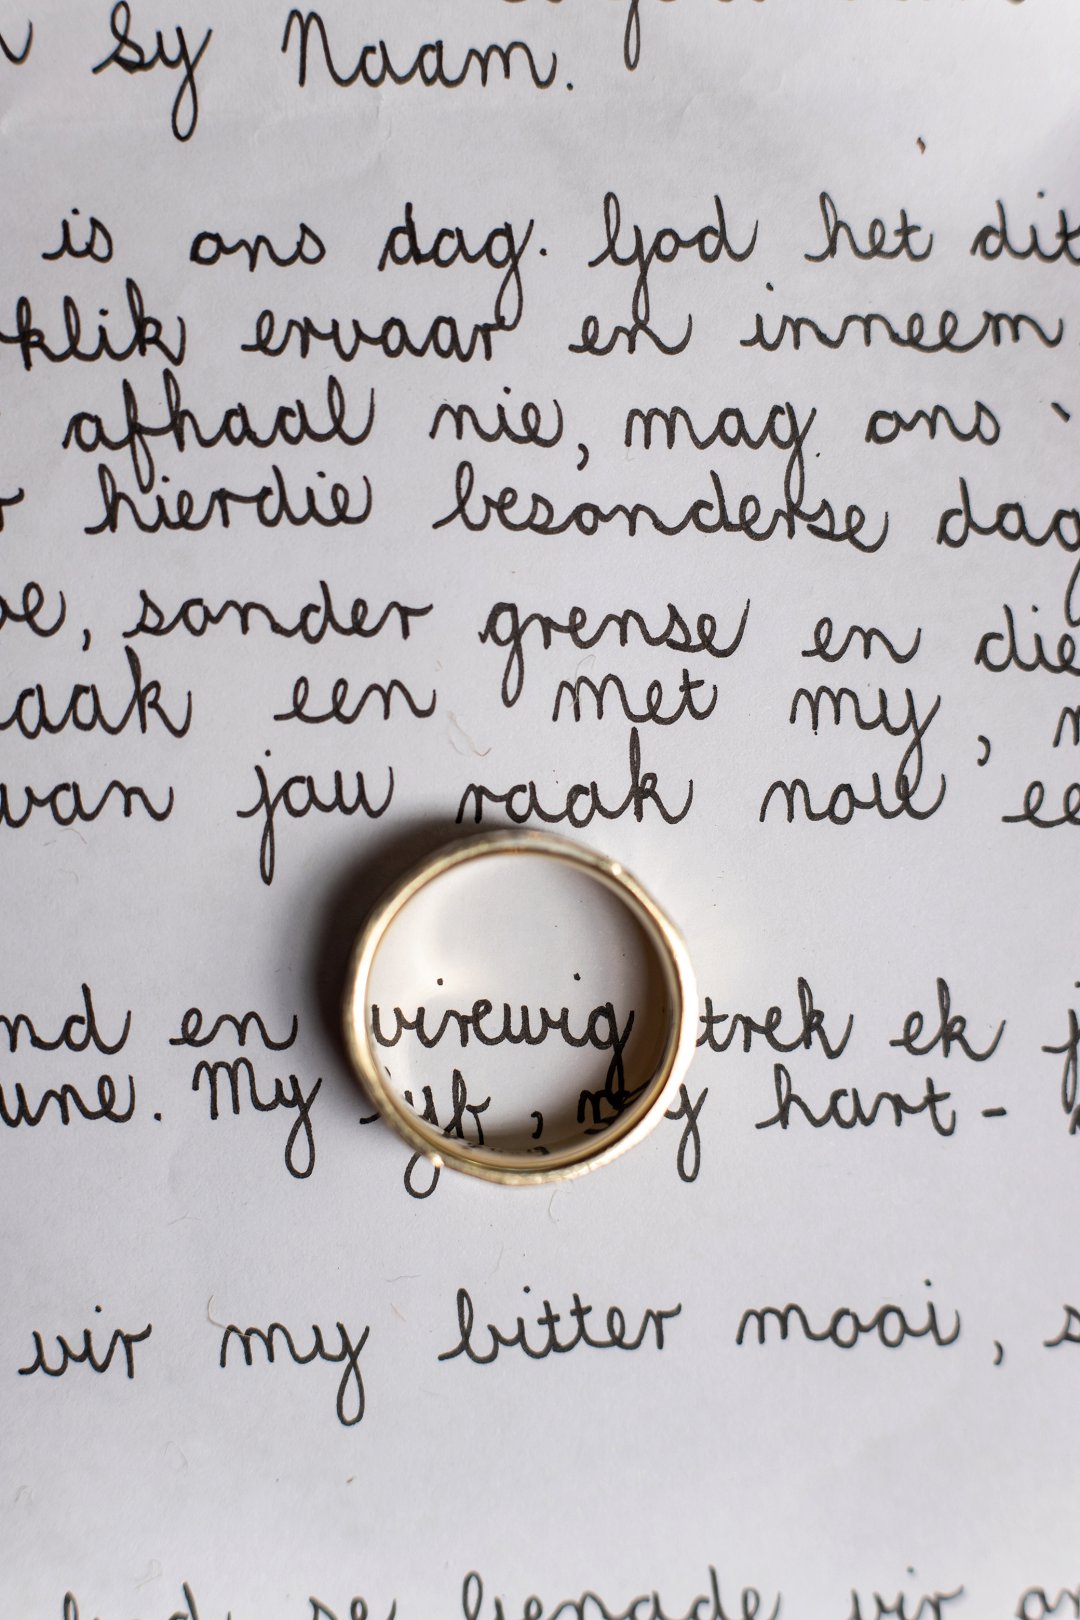 Sy Naam.
is ons dag. God het dit
klik ervaar en inneem
afhaal nie, mag ons
hierdie besonderse dag
sonder grense en die
aak een met my,
van jou raak nou ee
nd en virewig trek ek j
une. My lyf, my hart -
vir my bitter mooi, s
se genade vir